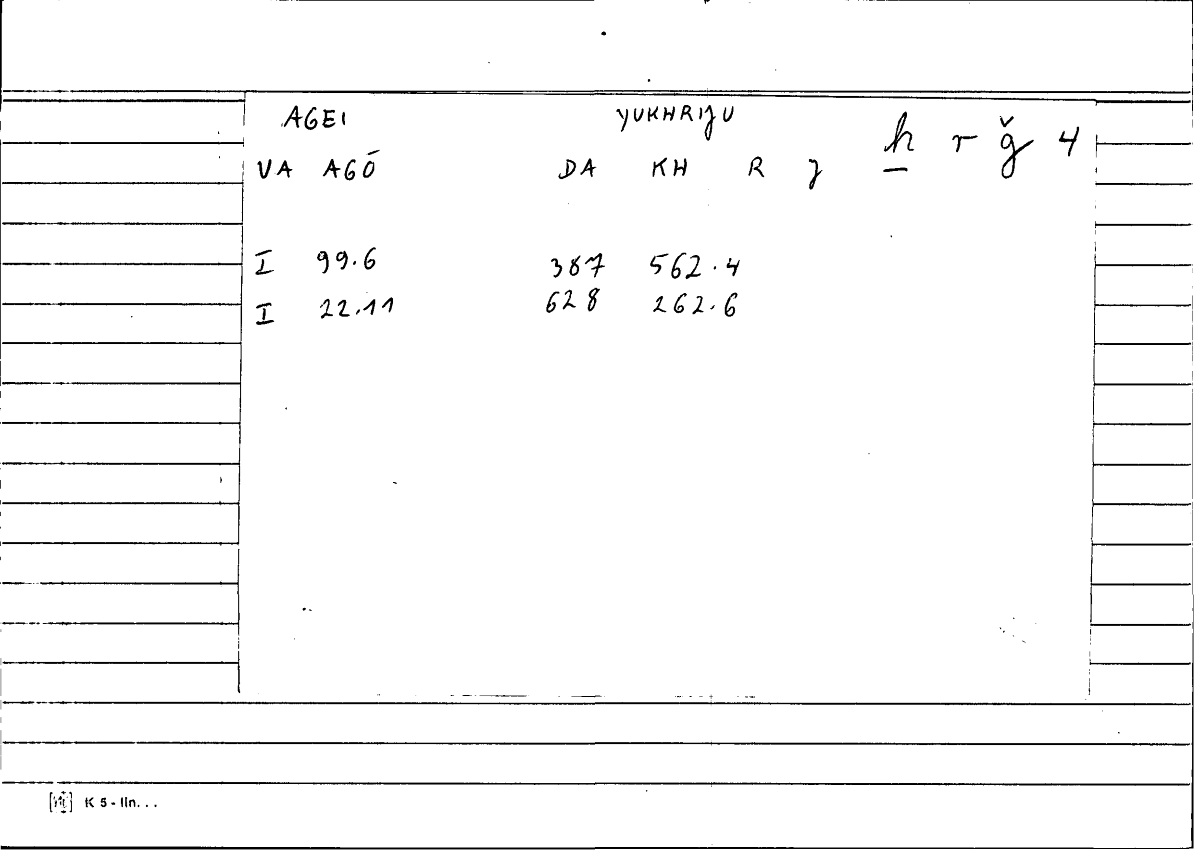 AGEI YUKHRIJU
ẖ r ǧ 4
VA AGŌ DA KH R J
I 99.6 387 562.4
I 22.11 628 262.6
K 5 - lin. . .